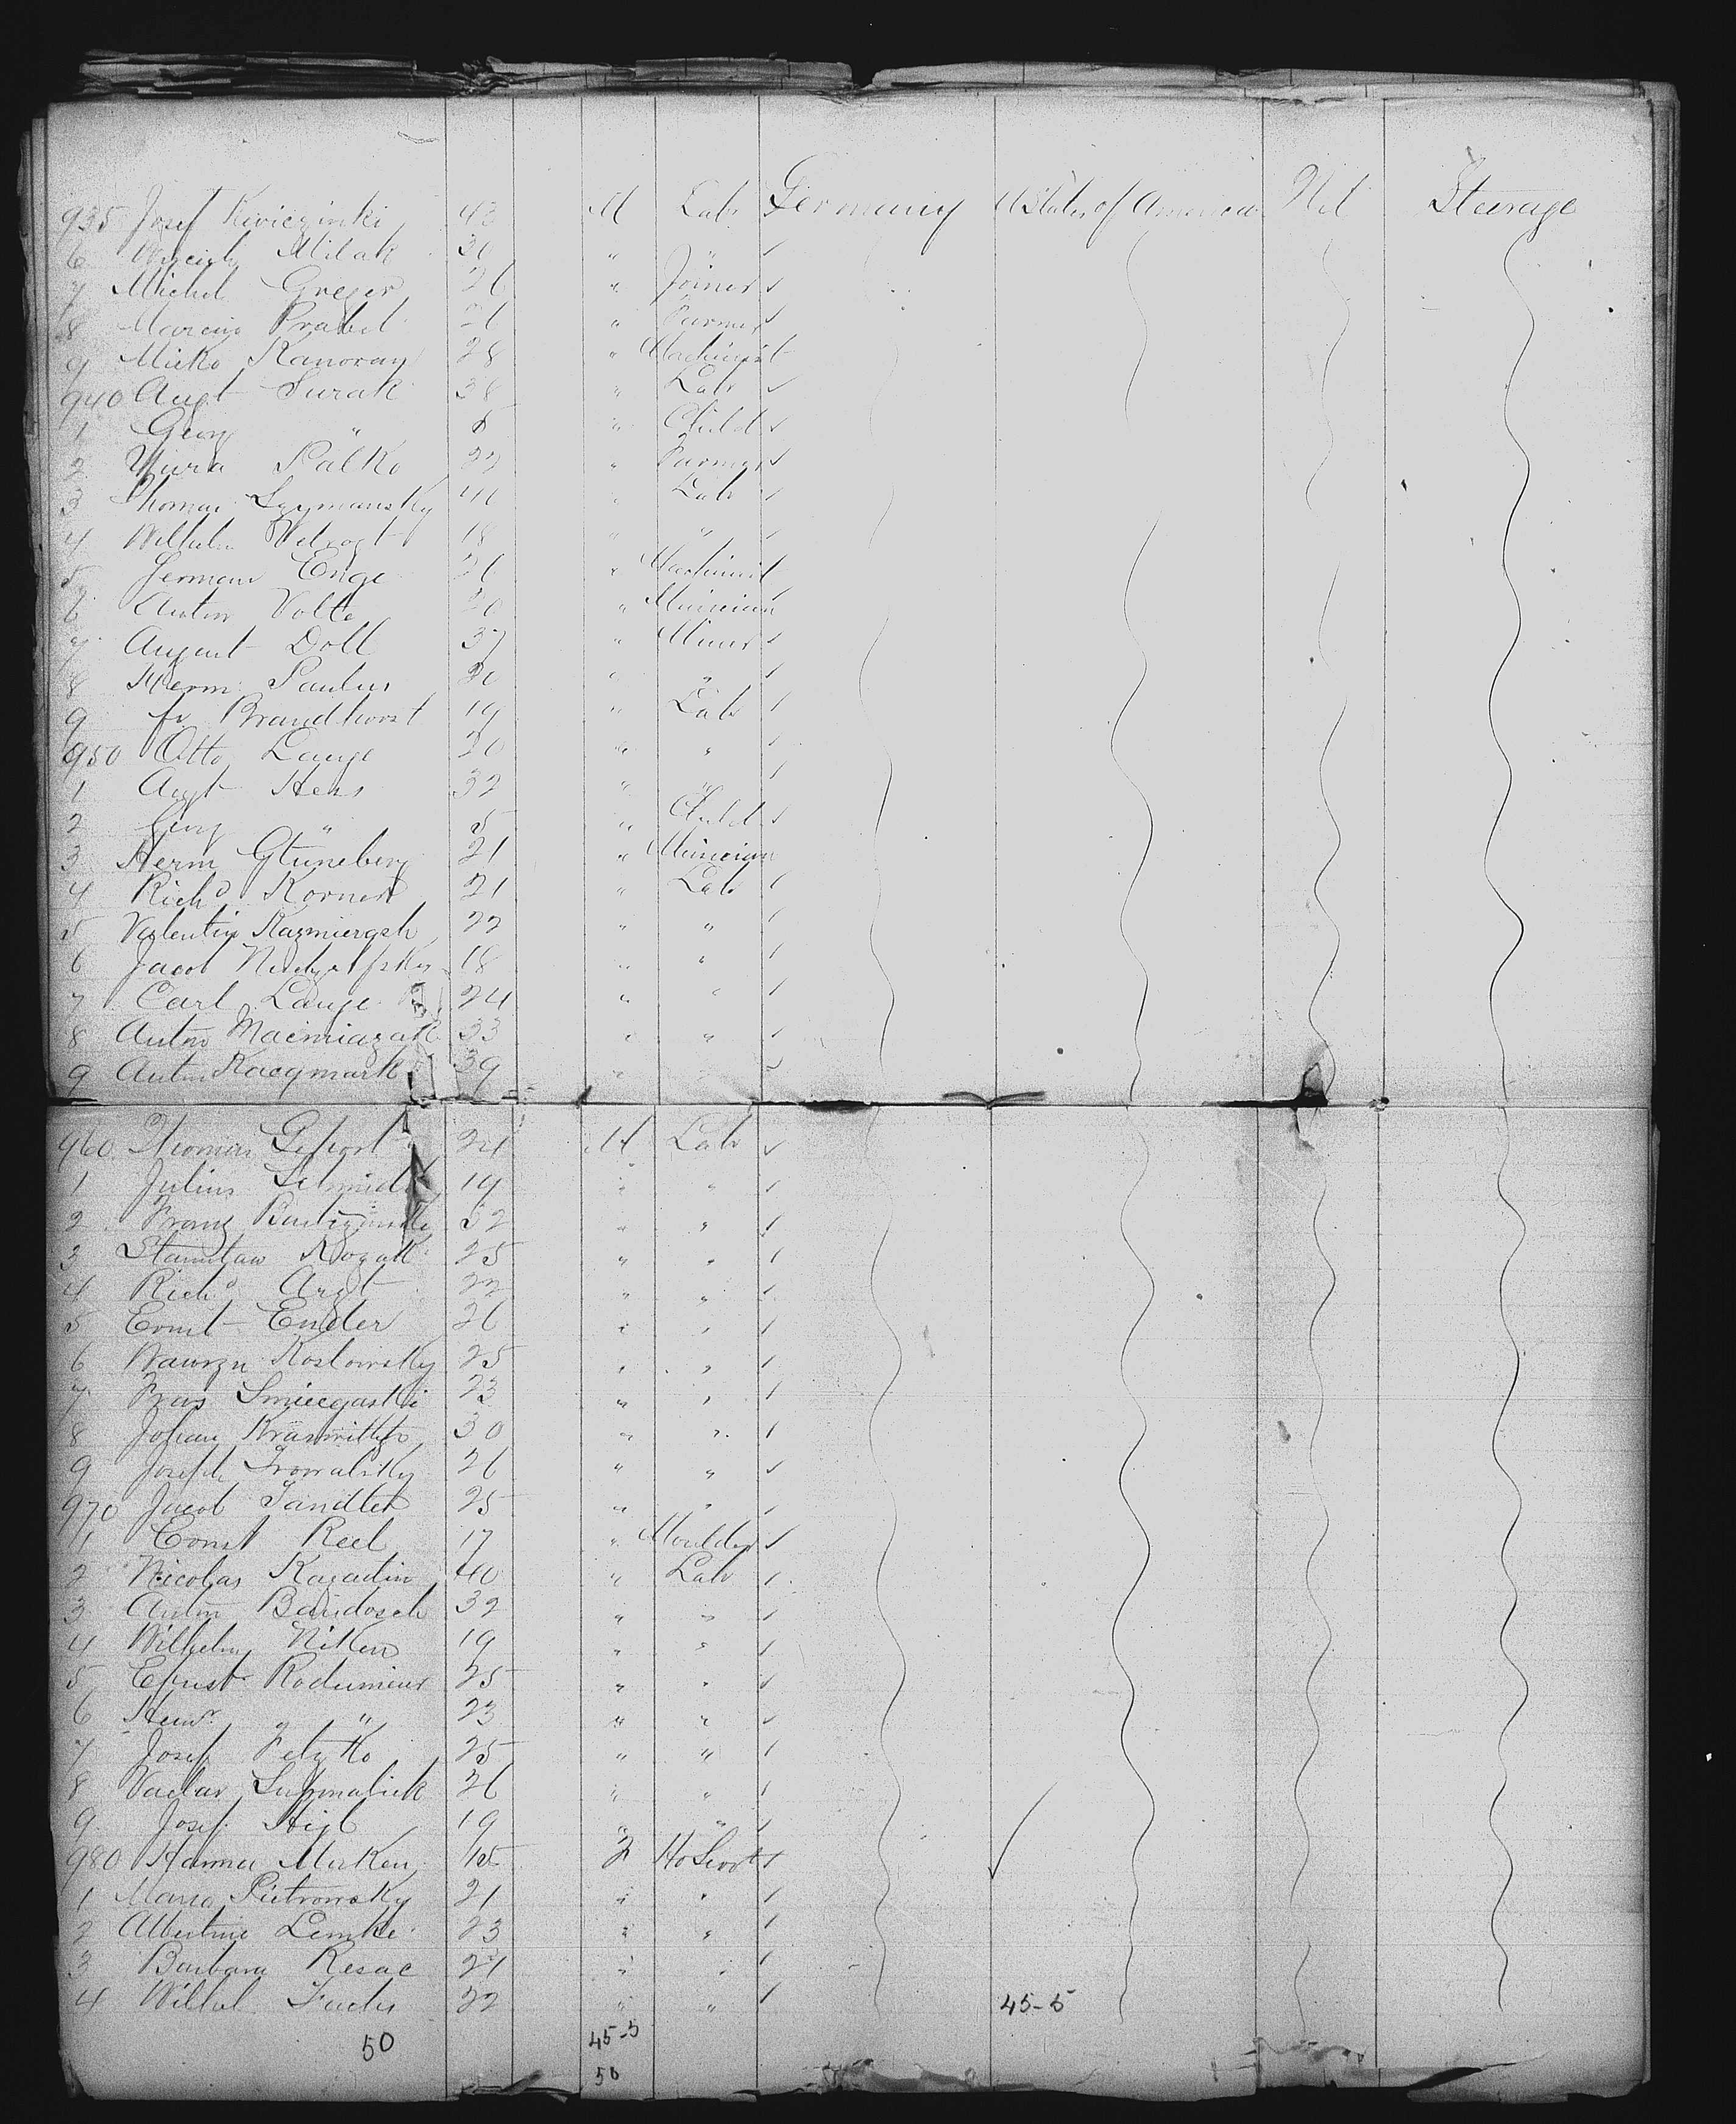 935 Josef Kiviczinki 43 M Lab Germany U States of America Nil Steerage
6 Milak 30 " "
7 Michel Greger 26 " Joiner
8 Prabel 26 " Farmer
9 Mieko Kanovay 28 " Machinist
940 Augt Surak 38 " Lab
1 Georg " 8 " Child
2 Yiura Palko 22 " Farmer
3 Thomas Szymansky " Lab
4 Wilhelm 18 " "
5 Herman Enge 26 " Machinist
6 Anton Volte 20 " Musician
7 August Doll 37 " Miner
8 Herm Paulus 20 " "
9 Fr Brandhorst 19 " Lab
950 Otto Lange 20 " "
1 Augt Hens 32 " "
2 Georg " 5 " Child
3 Herm Gtuneberg 21 " Musician
4 Richd Korner 21 " Lab
5 Valentin Kazmiergsh 22 " "
6 Jacob 18 " "
7 Carl Lange 24 " "
8 Anton Macmiazak 33 " "
9 Anton Kacymark 39 "
960 Gehort 24 M Lab
1 Julius Schmidt 19 " "
2 Franz 32 " "
3 Stanislaw Kozak 25 " "
4 Richd Arzt 22 " "
5 Ernst Ender 26 " "
6 Wawrzn Koslowsky 25 " "
7 Fras Smiecgaski 23 " "
8 Johan 30 " "
9 Joseph 26 " "
970 Jacob Sandler 25 " "
1 Ernst Reel 17 " Moulder
2 Nicolas Kazadin 40 " Lab
3 Anton Bandosch 32 " "
4 Wilhelm Niken 19 " "
5 Ernst Rodumeier 25 " "
6 Heinr " 23 " "
7 Josef Petzko 25 " "
8 Vaclav 26 " "
9 Josef Higl 19 " "
980 Hanna Murken 15 F
1 Maria Pietrowsky 21 " "
2 Albertine Lemke 23 " "
3 Barbara Resac 24 " "
4 Wilhel Fuchs 22 " " 45-5
50 45-5
50